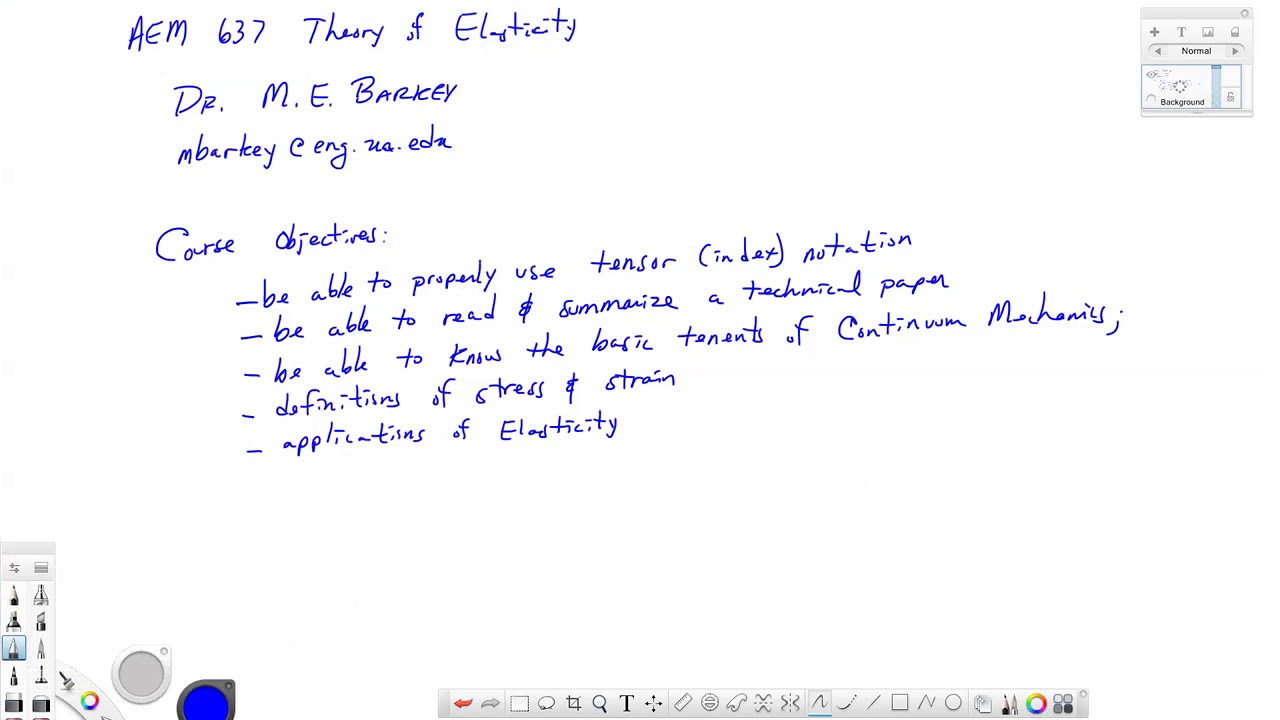 AEM 637 Theory of Elasticity
DR. M. E. BARKEY
mbarkey@eng.ua.edu
Course Objectives:
- be able to properly use tensor (index) notation
- be able to read & summarize a technical paper
- be able to know the basic tenents of Continuum Mechanics;
- definitions of stress & strain
- applications of Elasticity
T
Normal
Background
T